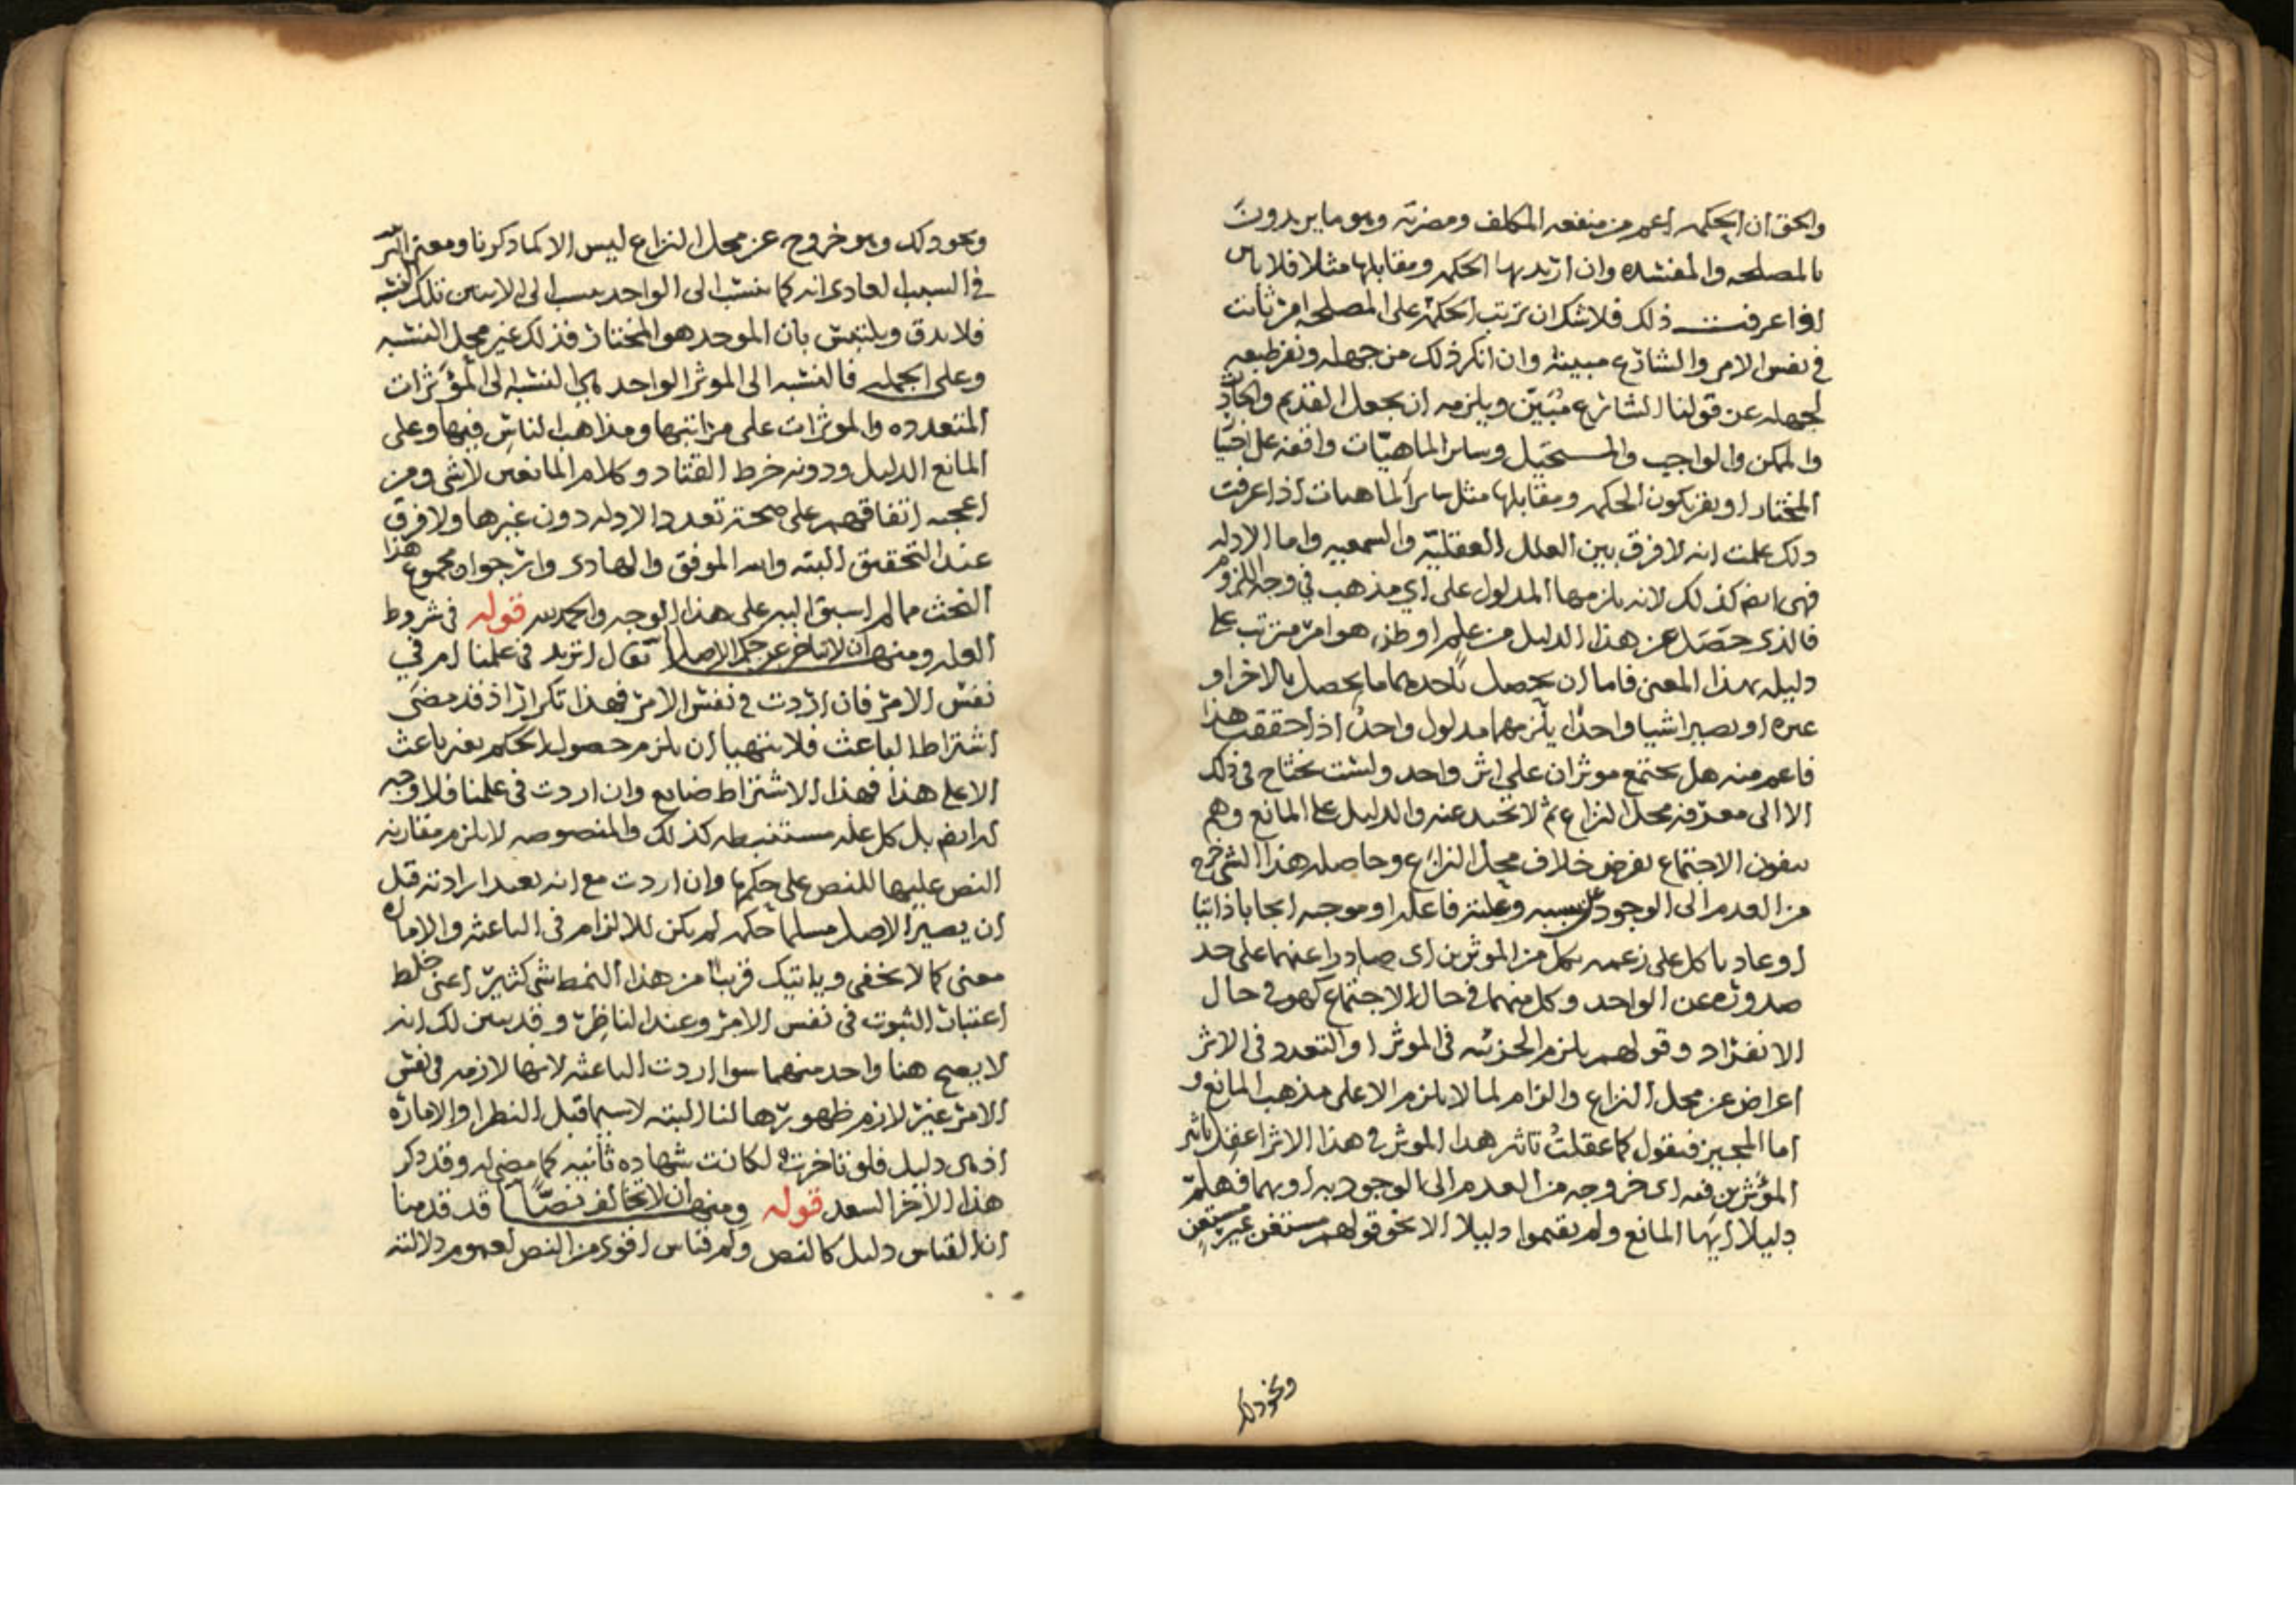 والحق ان الحكمه اعم من منفعه المكلف ومضرته وهو ما يريدون
بالمصلحه والمفسده وان اريد بها الحكمه ومقابلها مثلا فلا باس
اذا عرفت ذلك فلا شك ان ترتب الحكمه على المصلحه امر ثابت
في نفس الامر والشارع مبينه وان انكر ذلك من جهله ونفر طبعه
لجهله عن قولنا الشارع مُبَيّن ويلزمه ان يجعل القديم والحادث
والممكن والواجب والمستحيل وساير الماهيّات واقفه على اختيار
المختار او يفر بكون الحكمه ومقابلها مثل ساير الماهيات اذا عرفت
ذلك علمت انه لا فرق بين العلل العقليّه والسمعيه واما الادله
فهى ايضا كذلك لانه يلزمها المدلول على اي مذهب في وجه اللزوم
فالذى حصَل عن هذا الدليل من علم او ظن هو امر مترتب على
دليله بهذا المعنى فاما ان يحصل باحدهما ما يحصل بالاخر او
غيره او يصير اشيا واحدًا يلزمهما مدلول واحد اذا حققت هذا
فاعم منه هل يجتمع موثران على اثر واحد ولست تحتاج في ذلك
الا الى معرفه محل النزاع ثم لا تحيد عنه والدليل على المانع وهم
ينفون الاجتماع بفرض خلاف محل النزاع وحاصله هذا الشي خرج
من العدم الى الوجود عن سببه وعلته فاعله او موجبه ايجابا ذاتيا
او عاديا كل على زعمه بكل من الموثرين اى صادرا عنهما على حد
صدوره عن الواحد وكل منهما في حال الاجتماع كهو في حال
الانفراد وقولهم يلزم الجزئيه في الموثر او التعدد في الاثر
اعراض عن محل النزاع والزام لما لا يلزم الا على مذهب المانع و
اما المجيز فيقول كما عقلتُ تاثير هذا الموثر في هذا الاثر اعقل تاثير
المؤثرين فيه اى خروجه من العدم الى الوجود به او بهما فهلمّ
دليلا ايها المانع ولم يقيموا دليلا الا نحو قولهم مستغن غير مستغن
ونحو ذلك
ونحو ذلك وهو خروج عن محل النزاع ليس الا كما ذكرنا ومعنى التاثير
في السبب العادى انه كما ينسب الى الواحد ينسب الى الاثنين تلك النسبه
فلا يدق ويلتبس بان الموجد هو المختار فذلك غير محل النسبه
وعلى الجمله فالنسبه الى الموثر الواحد هي النسبه الى المؤثرات
المتعدده والموثرات على مراتبها ومذاهب الناس فيها وعلى
المانع الدليل ودونه خرط القتاد وكلام المانعين لا شى ومن
اعجبه اتفاقهم على صحة تعدد الادله دون غيرها ولا فرق
عند التحقيق البته والله الموفق والهادى وارجو ان مجموع هذا
البحث مما لم اسبق اليه على هذا الوجه والحمد لله قوله في شروط
العله ومنها ان لا تتاخر عن حكم الاصل يقال اتريد في علمنا ام في
نفس الامر فان اردت في نفس الامر فهذا تكرار اذ قد مضى
اشتراط الباعث فلا يتهيا ان يلزم حصول الحكم بغير باعث
الا على هذا فهذا الاشتراط ضايع وان اردت في علمنا فلا وجه
له ايضا بل كل عله مستنبطه كذلك والمنصوصه لا يلزم مقارنه
النص عليها للنص على حكمها وان اردت مع انه بعد ارادته قبل
ان يصير الاصل مسلما حكمه لم يكن للالزام في الباعثه والاماره
معنى كما لا يخفى وياتيك قريبا من هذا النمط شى كثير اعنى خلط
اعتبار الثبوت في نفس الامر وعند الناظر وقد تبين لك انه
لا يصح هنا واحد منهما سوا اردت الباعثه لانها لازمه في نفس
الامر غير لازم ظهورها لنا البته لا سيما قبل النظر او الاماره
اذ هى دليل فلو تاخرت لكانت شهاده ثانيه كما مضى له وقد ذكر
هذا الاخر السعد قوله ومنها ان لا تخالف نصًّا قد قدمنا
ان القياس دليل كالنص وكم قياس اقوى من النص لعموم دلالته